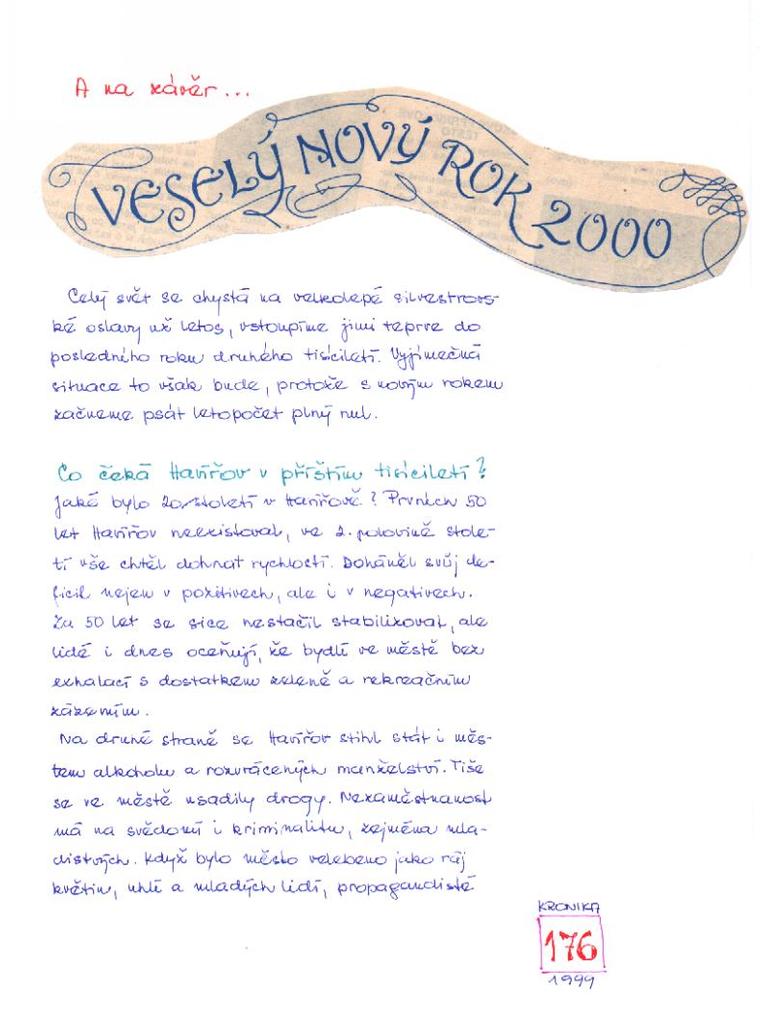 A na závěr...
VESELÝ NOVÝ ROK 2000
Celý svět se chystá na velkolepé silvestrovs-
ké oslavy už letos, vstoupíme jimi teprve do
posledního roku druhého tisíciletí. Vyjímečná
situace to však bude, protože s novým rokem
začneme psát letopočet plný nul.
Co čeká Havířov v příštím tisíciletí?
Jaké bylo 20. století v Havířově? Prvních 50
let Havířov neexistoval, ve 2. polovině stole-
tí vše chtěl dohnat rychlostí. Doháněl svůj de-
ficil nejen v pozitivech, ale i v negativech.
Za 50 let se sice nestačil stabilizovat, ale
lidé i dnes oceňují, že bydlí ve městě bez
exhalací s dostatkem zeleně a rekreačním
zázemím.
Na druhé straně se Havířov stihl stát i měs-
tem alkoholu a rozvrácených manželství. Tiše
se ve městě usadily drogy. Nezaměstnanost
má na svědomí i kriminalitu, zejména mla-
distvých. Když bylo město velebeno jako ráj
květin, uhlí a mladých lidí, propagandisté
KRONIKA
176
1999